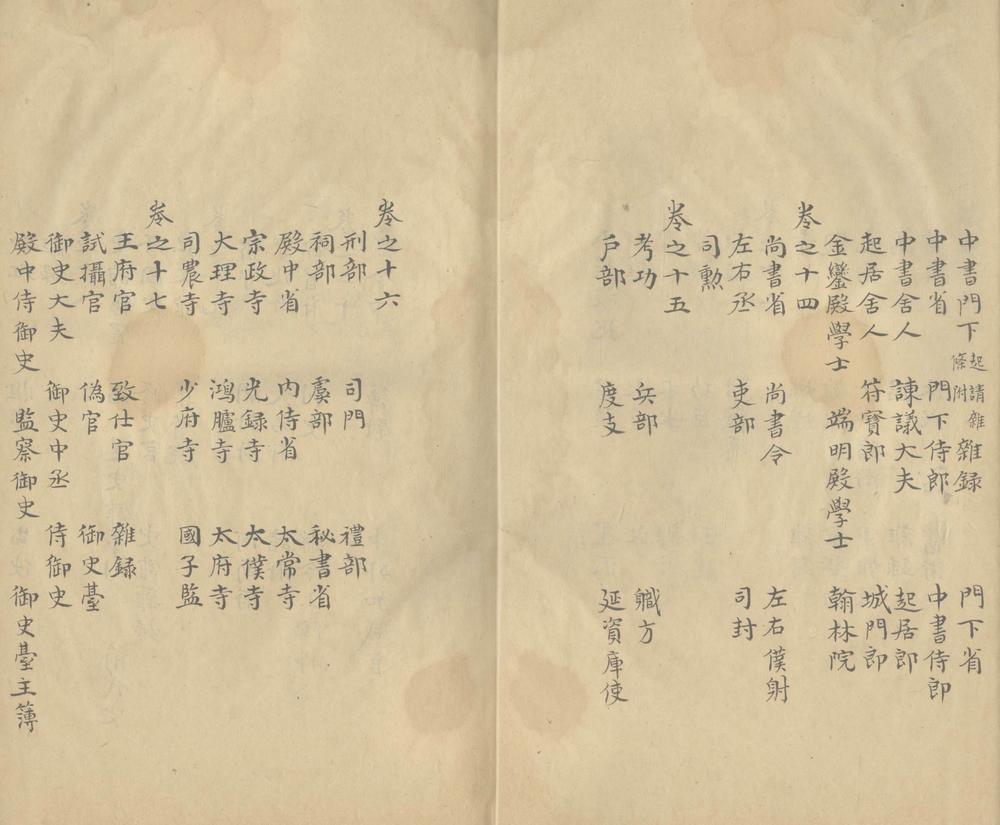 中書門下 起請雜條附 雜録 門下省
中書省 門下侍郎 中書侍郎
中書舍人 諫議大夫 起居郎
起居舍人 符寳郎 城門郎
金鑾殿學士 端明殿學士 翰林院
卷之十四
尚書省 尚書令 左右僕射
左右丞 吏部 司封
司勲
卷之十五
考功 兵部 職方
戶部 度支 延資庫使
卷之十六
刑部 司門 禮部
祠部 虞部 秘書省
殿中省 内侍省 太常寺
宗政寺 光録寺 太僕寺
大理寺 鴻臚寺 太府寺
司農寺 少府寺 國子監
卷之十七
王府官 致仕官 雜録
試攝官 偽官 御史臺
御史大夫 御史中丞 侍御史
殿中侍御史 監察御史 御史臺主簿